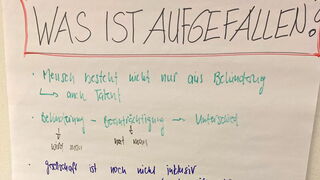 WAS IST AUFGEFALLEN?
· Mensch besteht nicht nur aus Behinderung
↳ auch Talent
· Behinderung – Beeinträchtigung → Unterschied
wird man hat man
· Gesellschaft ist noch nicht inklusiv